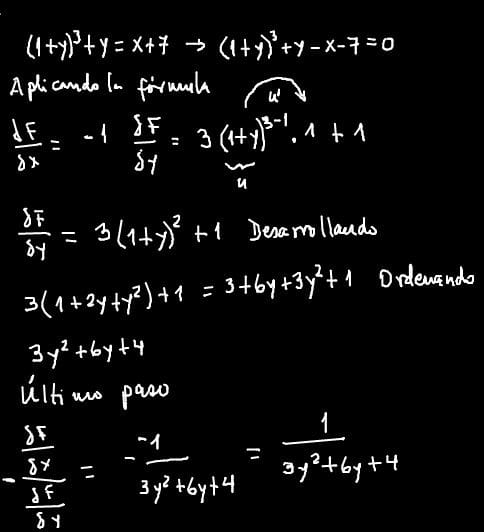 (1+y)³+y = x+7 → (1+y)³+y-x-7=0
Aplicando la fórmula
δF/δx = -1 δF/δy = 3(1+y)³⁻¹.1+1
u'
u
δF/δy = 3(1+y)²+1 Desarrollando
3(1+2y+y²)+1 = 3+6y+3y²+1 Ordenando
3y²+6y+4
Último paso
- (δF/δx)/(δF/δy) = - -1/(3y²+6y+4) = 1/(3y²+6y+4)